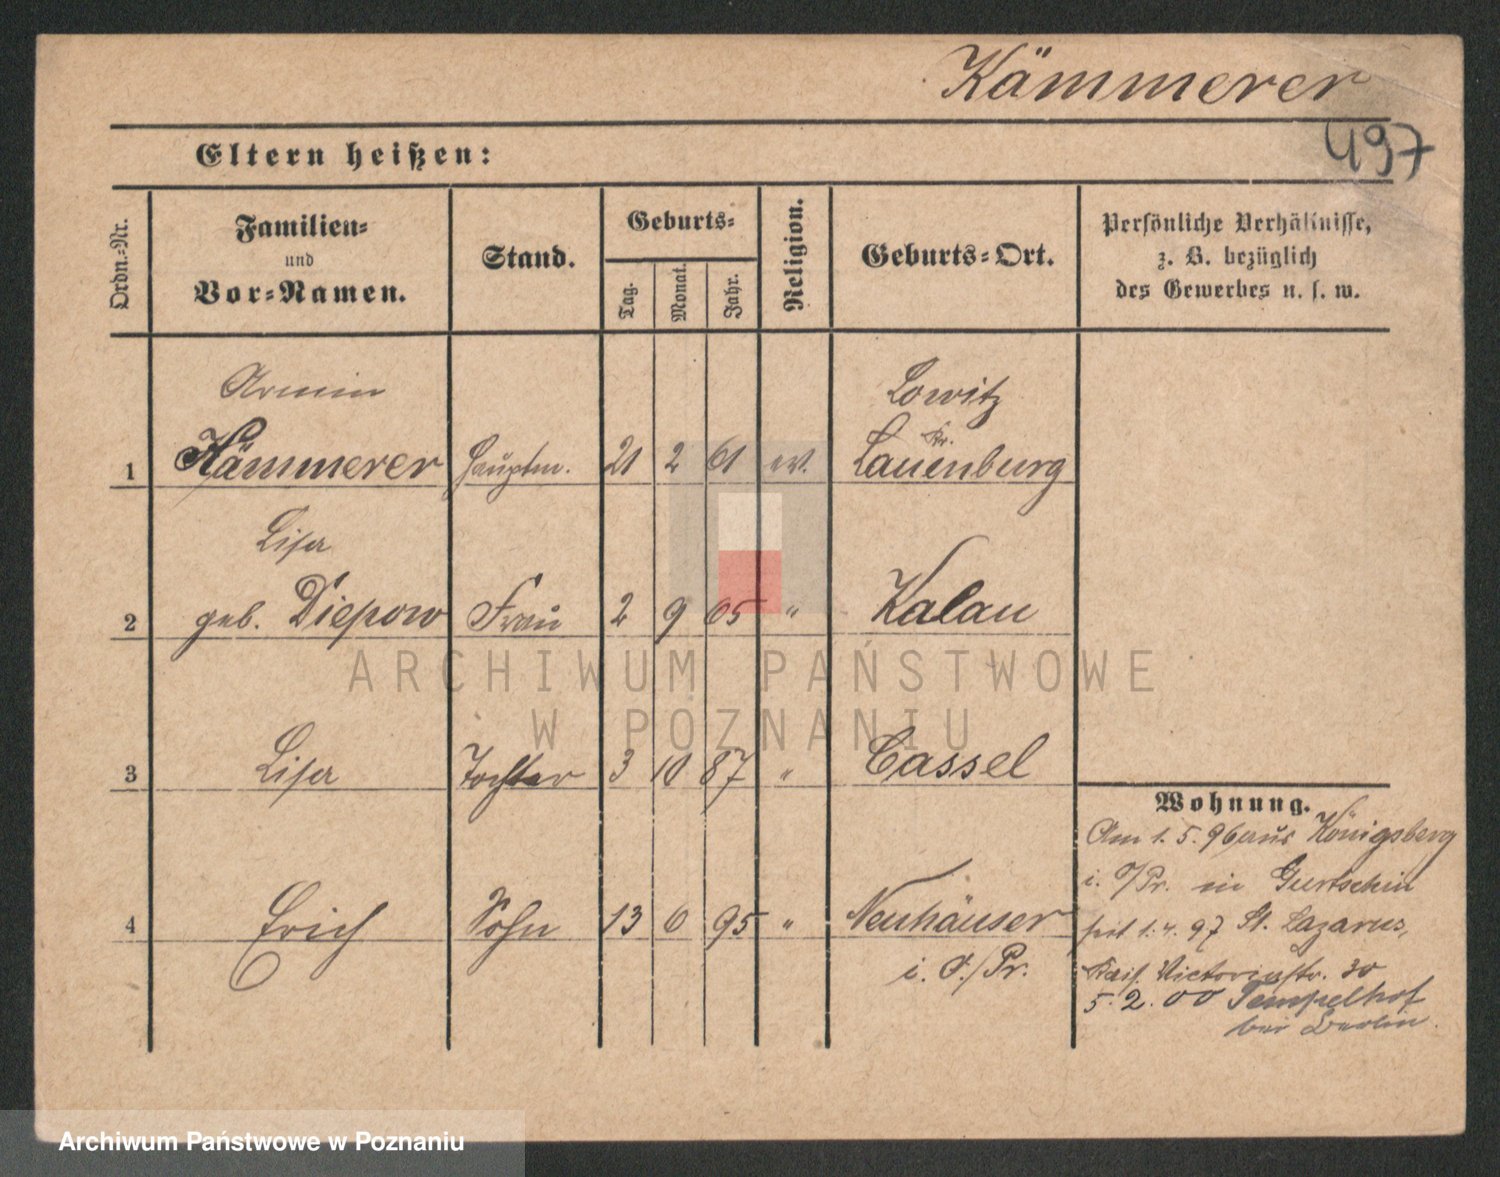 Kämmerer
497
Eltern heißen:
Ordn.-Nr.
Familien-
und
Vor-Namen.
Stand.
Geburts-
Tag.
Monat.
Jahr.
Religion.
Geburts-Ort.
Persönliche Verhältnisse,
z. B. bezüglich
des Gewerbes u. s. w.
Armin
Lowitz
Kr.
1 Kämmerer Hauptm. 21 2 61 ev. Lauenburg
Lisa
2 geb. Diepow Frau 2 9 65 " Kalau
ARCHIWUM PAŃSTWOWE
W POZNANIU
3 Lisa Tochter 3 10 87 " Cassel
4 Erich Sohn 13 6 95 " Neuhäuser
i. O./Pr.
Wohnung.
Am 1. 5. 96 aus Königsberg
i. O/Pr. in Gurtschin
seit 1. 4. 97 St. Lazarus,
Kais. Victoriastr. 30
5. 2. 00 Tempelhof
bei Berlin.
Archiwum Państwowe w Poznaniu